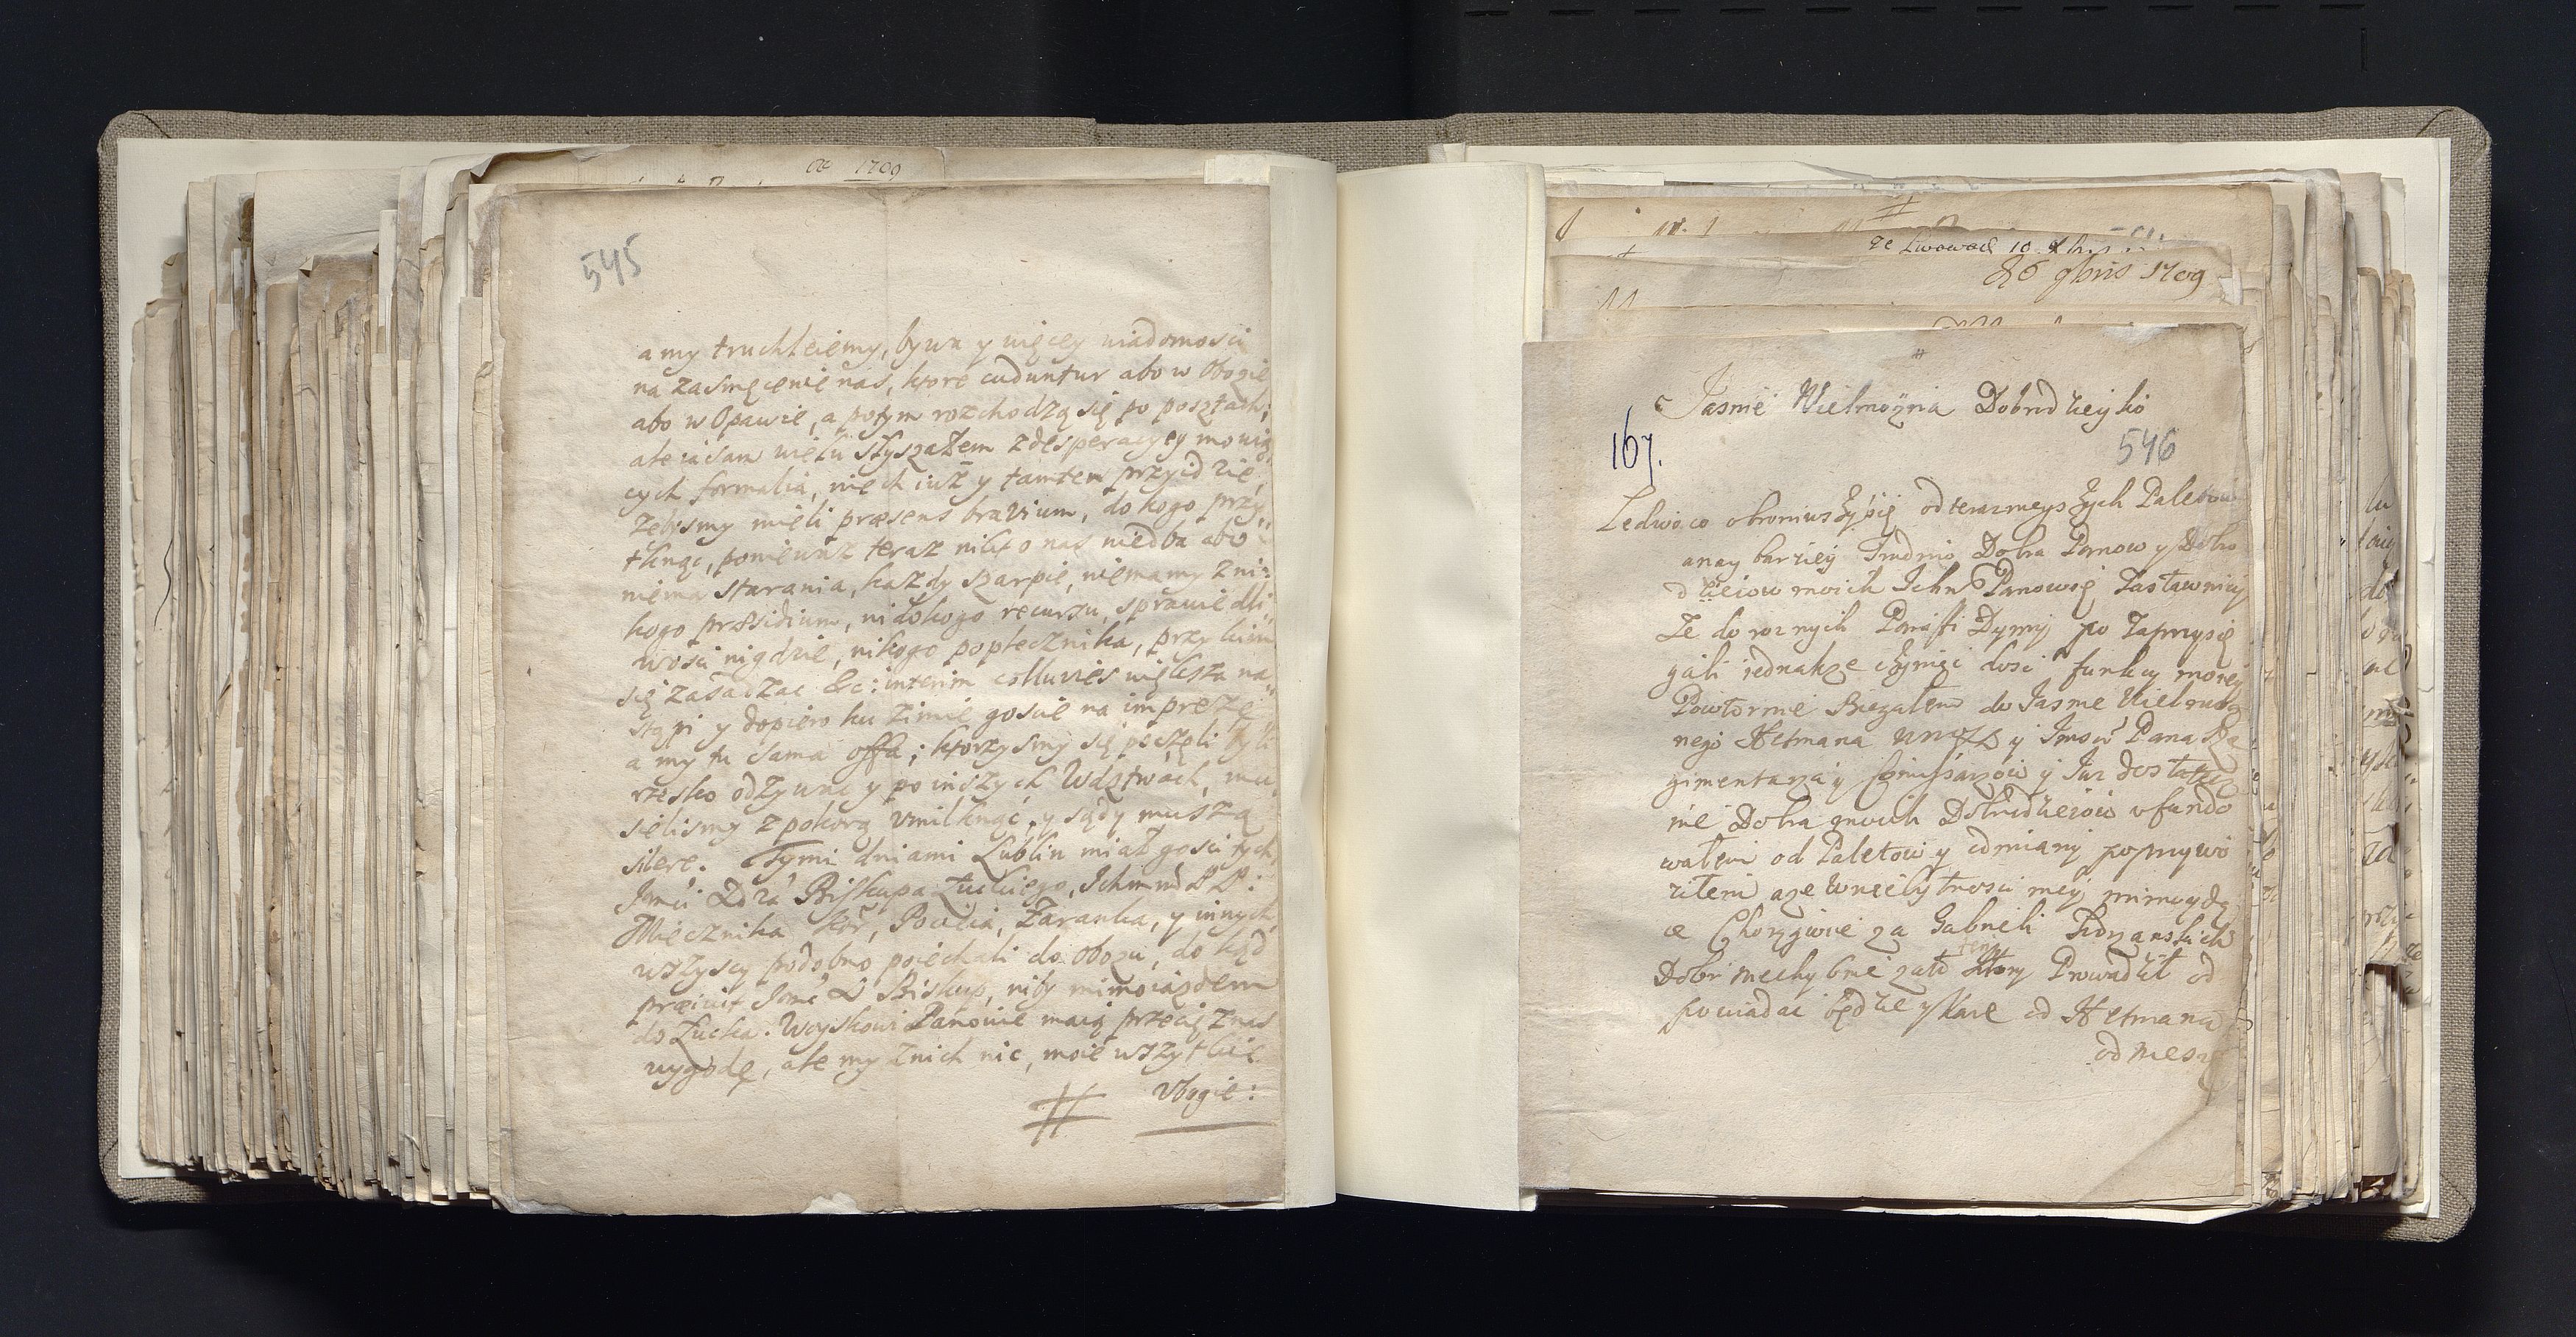 de 1709
545
a my truchleiemy, bywa y więcey wiadomosci
na zasmęcenie nas, ktore cuduntur abo w Obozie
abo w Opawie, a potym rozchodzą się po posztach;
ale ia sam wielu słyszałem z desperacyey mowią,,
cych formalia, niech iuż y tamten przyidzie
żebysmy mieli præsens bravium, do kogo przy,,
tknąć, poniewaz teraz nikt o nas niedba abo
niema starania, kazdy szarpie, niemamy zni,,
kogo præsidium, nidokogo recursu, sprawiedli,,
wosci nigdzie, nikogo poplecznika, przy kim
się zasadzac &c: interim colluvies większa na,,
stąpi y dopiero ku zimie goscie na imprezę
a my tu sama offa; ktorzysmy się poczęli byli
rzesko odzywac y po inszych Wdztwach, mu,,
sielismy z pokorą umilknąć, y sądy muszą
silere. Tymi dniami Lublin miał gosci tych
Jmći Xdza Biskupa Łuckiego, Ichmmd PP:
Miecznika Kor, Pocieia, Zaranka, y innych
wszyscy podobno poiechali do Obozu, do kąd
præivit Jmć X Biskup, niby mimoiazdem
do Łucka. Woyskowi Panowie maią przecię z nas
wygodę, ale my z nich nic, moie wszytkie
Ubogie:
#
#
ze Lwowa d 10
26 9bris 1709
#
Jasnie Wielmożna Dobrodzieyko
167.
546
Ledwo co obroniwszy się od terazmeyszych Paletow
anay barziey Trudnio Dobra Panow y Dobro
dzieiow moich Ichm Panowsę Zastawnicy
Ze do roznych Parafii Dymy po Zaprzysię
gali iednakze czyniąc dosc funkcy moiey
Powtornie Biegałem do Jasnie Wielmoż
nego Hetmana y Jmosć Pana Re
gimentarza y Comissarzow y Juz dostatecz
nie Dobra moich Dobrodzieiow ufundo
wałem od Paletow y odmiany poprzywo
ziłem aze wniebytnosci mey mimo yda
ce Chorągwie za Gabneli
Dobr niechybnie zato ten ktory Prowadził od
powiadac będzie y Kare od Hetmana
odniesie